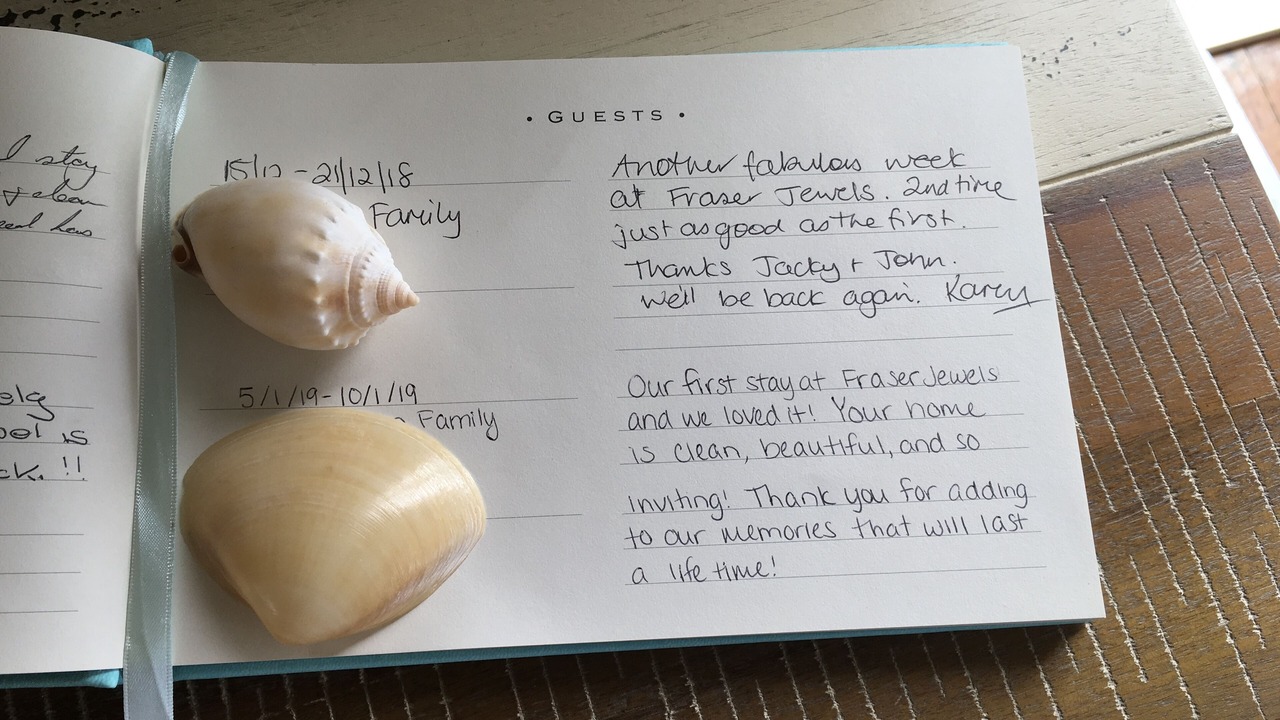 I stay
& clean
has
is
!!
• GUESTS •
15/12 - 21/12/18
Family
Another fabulous week
at Fraser Jewels. 2nd time
just as good as the first.
Thanks Jacky + John.
We'll be back again. Karen
5/1/19 - 10/1/19
Family
Our first stay at Fraser Jewels
and we loved it! Your home
is clean, beautiful, and so
inviting! Thank you for adding
to our memories that will last
a life time!